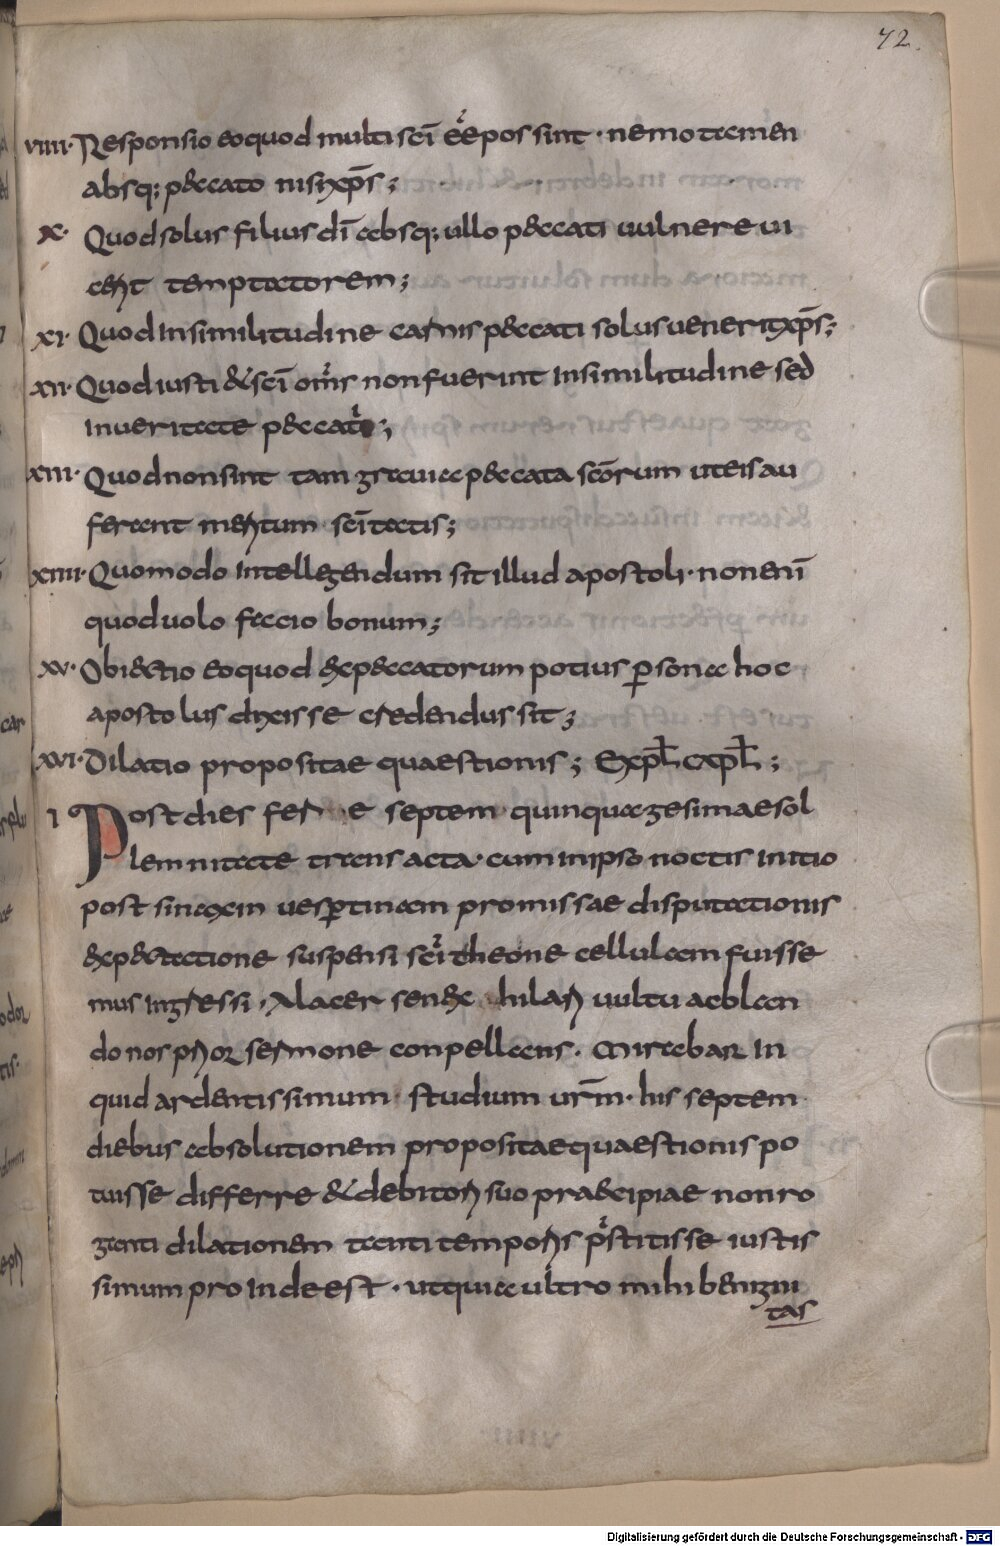 72.
VIIII· Responsio eo quod multi sc̄i eẽ possint · nemo tamen
absq; peccato nisi xp̄s;
X· Quod solus filius dī absq; ullo peccati uulnere ui
cerit temptatorem;
XI· Quod in similitudine carnis peccati solus uenerit xp̄s;
XII· Quod iusti & sc̄i om̄s non fuerint in similitudine sed
in ueritate peccati;
XIII· Quod non sint tam grauia peccata sc̄orum ut eis au
ferant meritum sc̄itatis;
XIIII· Quomodo intellegendum sit illud apostoli · non eni̅
quod uolo facio bonum;
XV· Obiectio eo quod de peccatorum potius p̱sona hoc
apostolus dixisse credendus sit;
XVI· Dilatio propositae quaestionis; Expl̄ cap̄l;
I Post dies ferme septem quinquagesimae sol
lemnitate transacta · cum in ipso noctis initio
post sinaxin uesp̱tinam promissae disputationis
expectatione suspensi sc̄i theone cellulam fuisse
mus ingressi · Alacer senex hilari uultu ac blan
do nos priori sermone conpellans · Mirabar in
quid ardentissimum studium ur̄m · his septem
diebus absolutionem propositae quaestionis po
tuisse differre & debitori suo praecipiae non ro
ganti dilationem tanti temporis pr̄stitisse iustis
simum proinde est · ut quia ultro mihi benigni
tas
Digitalisierung gefördert durch die Deutsche Forschungsgemeinschaft - DFG